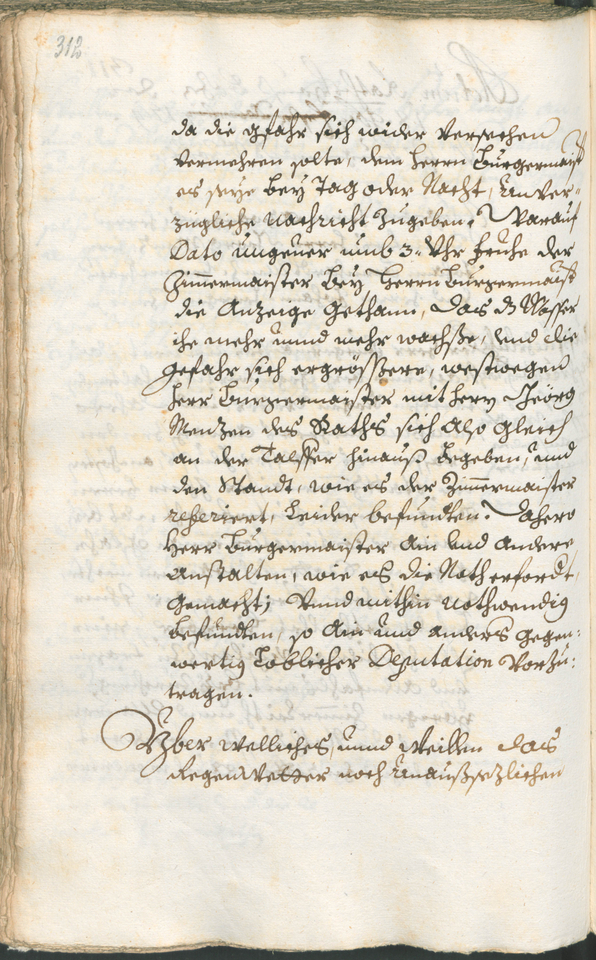 312
da die gfahr sich wider versechen
vermehren solte, dem herrn Burgermaist
es seye bey Tag oder Nacht, unver-
zügliche Nachricht zugeben. Warauf
Dato ungeuer umb 3. Uhr fruhe der
Zimermaister bey Herrn Burgermaist
die Anzeige gethann, das dz Wasser
ihe mehr unnd mehr wachße, und die
gefahr sich ergrössere, westwegen
Herr Burgermaister mit herrn Geörg
Menzen des Raths sich also gleich
an der Talffer hinauß begeben, und
den Standt, wie es der Zimermaister
referiert, leider befundten. Dahero
Herr Burgermaister ain und andere
Anstalten, wie es die Noth erfordt,
gemacht; Unnd mithin nothwendig
befundten, so ain und anders gegen-
wertig Löblicher Deputation vorzu-
tragen.
Yber welliches, unnd weillen das
Regenwetter noch unaußsezlichen